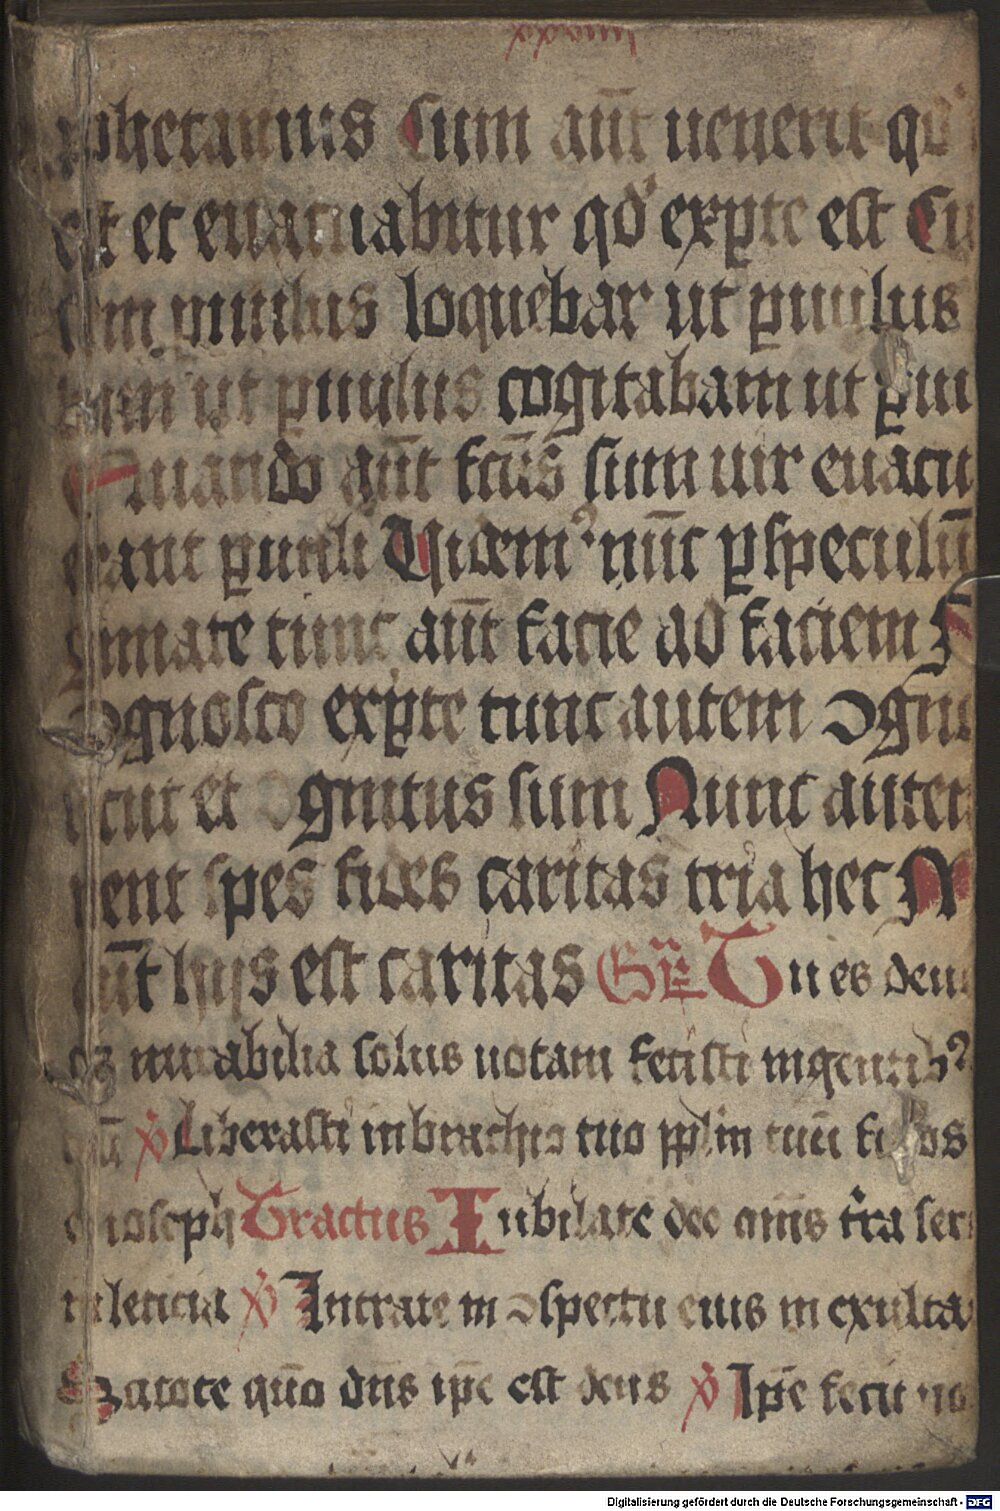 phetamus Cum aūt uenerit qḋ
est et euacuabitur qḋ exꝑte est Cu
em ꝑuulus loquebar ut ꝑuulus
bam ut ꝑuulus cogitabam ut ꝑuu
Quando aūt fcūs sum uir euacu
erant ꝑuuli Uidem⁹ nūc ꝑspeculū
gmate tunc aūt facie ad faciem
ↄgnosco exꝑte tunc autem ↄgno
icut et ↄgnitus sum Nunc autem
nent spes fides caritas tria hec M
aūt hijs est caritas Gr̄ Tu es deus
mirabilia solus notam fecisti ingentib⁹
tuā ℣ Liberasti in brachio tuo pplm tuū filios
et ioseph Tractus Iubilate deo om̄is tr̄a ser
in leticia ℣ Intrate in ↄspectu eius in exulta
Scitote qūo dn̄s ip̄e est deus ℣ Ip̄e fecit nos
Digitalisierung gefördert durch die Deutsche Forschungsgemeinschaft - DFG